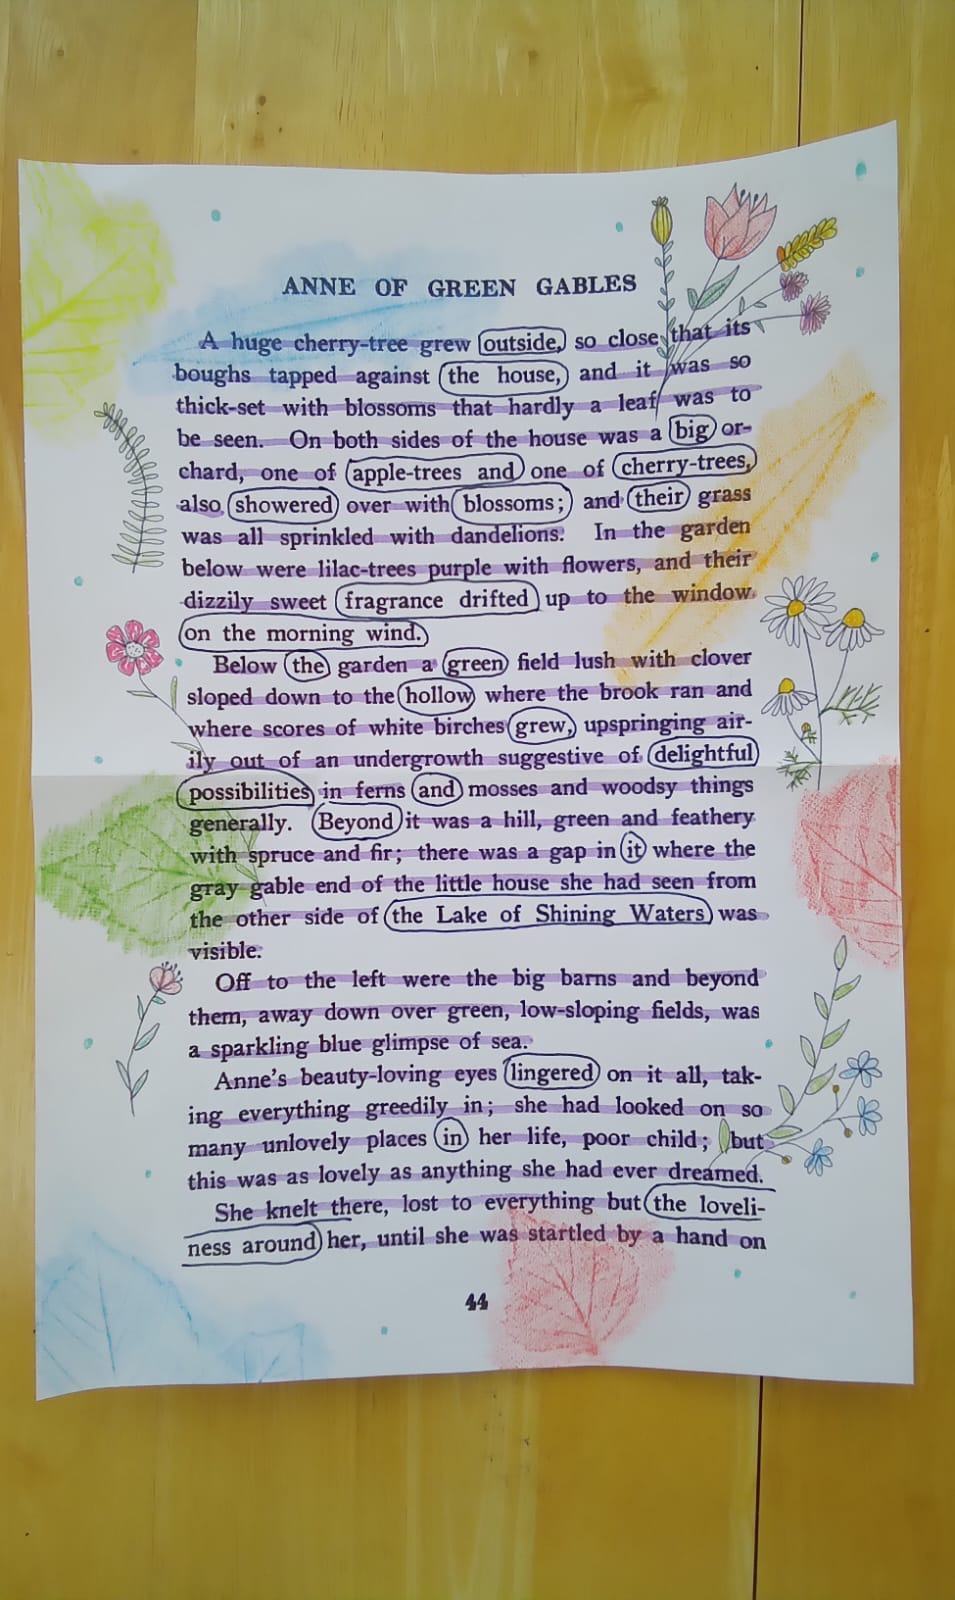 ANNE OF GREEN GABLES
A huge cherry-tree grew outside, so close that its
boughs tapped against the house, and it was so
thick-set with blossoms that hardly a leaf was to
be seen. On both sides of the house was a big or-
chard, one of apple-trees and one of cherry-trees,
also showered over with blossoms; and their grass
was all sprinkled with dandelions. In the garden
below were lilac-trees purple with flowers, and their
dizzily sweet fragrance drifted up to the window
on the morning wind.
Below the garden a green field lush with clover
sloped down to the hollow where the brook ran and
where scores of white birches grew, upspringing air-
ily out of an undergrowth suggestive of delightful
possibilities in ferns and mosses and woodsy things
generally. Beyond it was a hill, green and feathery
with spruce and fir; there was a gap in it where the
gray gable end of the little house she had seen from
the other side of the Lake of Shining Waters was
visible.
Off to the left were the big barns and beyond
them, away down over green, low-sloping fields, was
a sparkling blue glimpse of sea.
Anne's beauty-loving eyes lingered on it all, tak-
ing everything greedily in; she had looked on so
many unlovely places in her life, poor child; but
this was as lovely as anything she had ever dreamed.
She knelt there, lost to everything but the loveli-
ness around her, until she was startled by a hand on
44